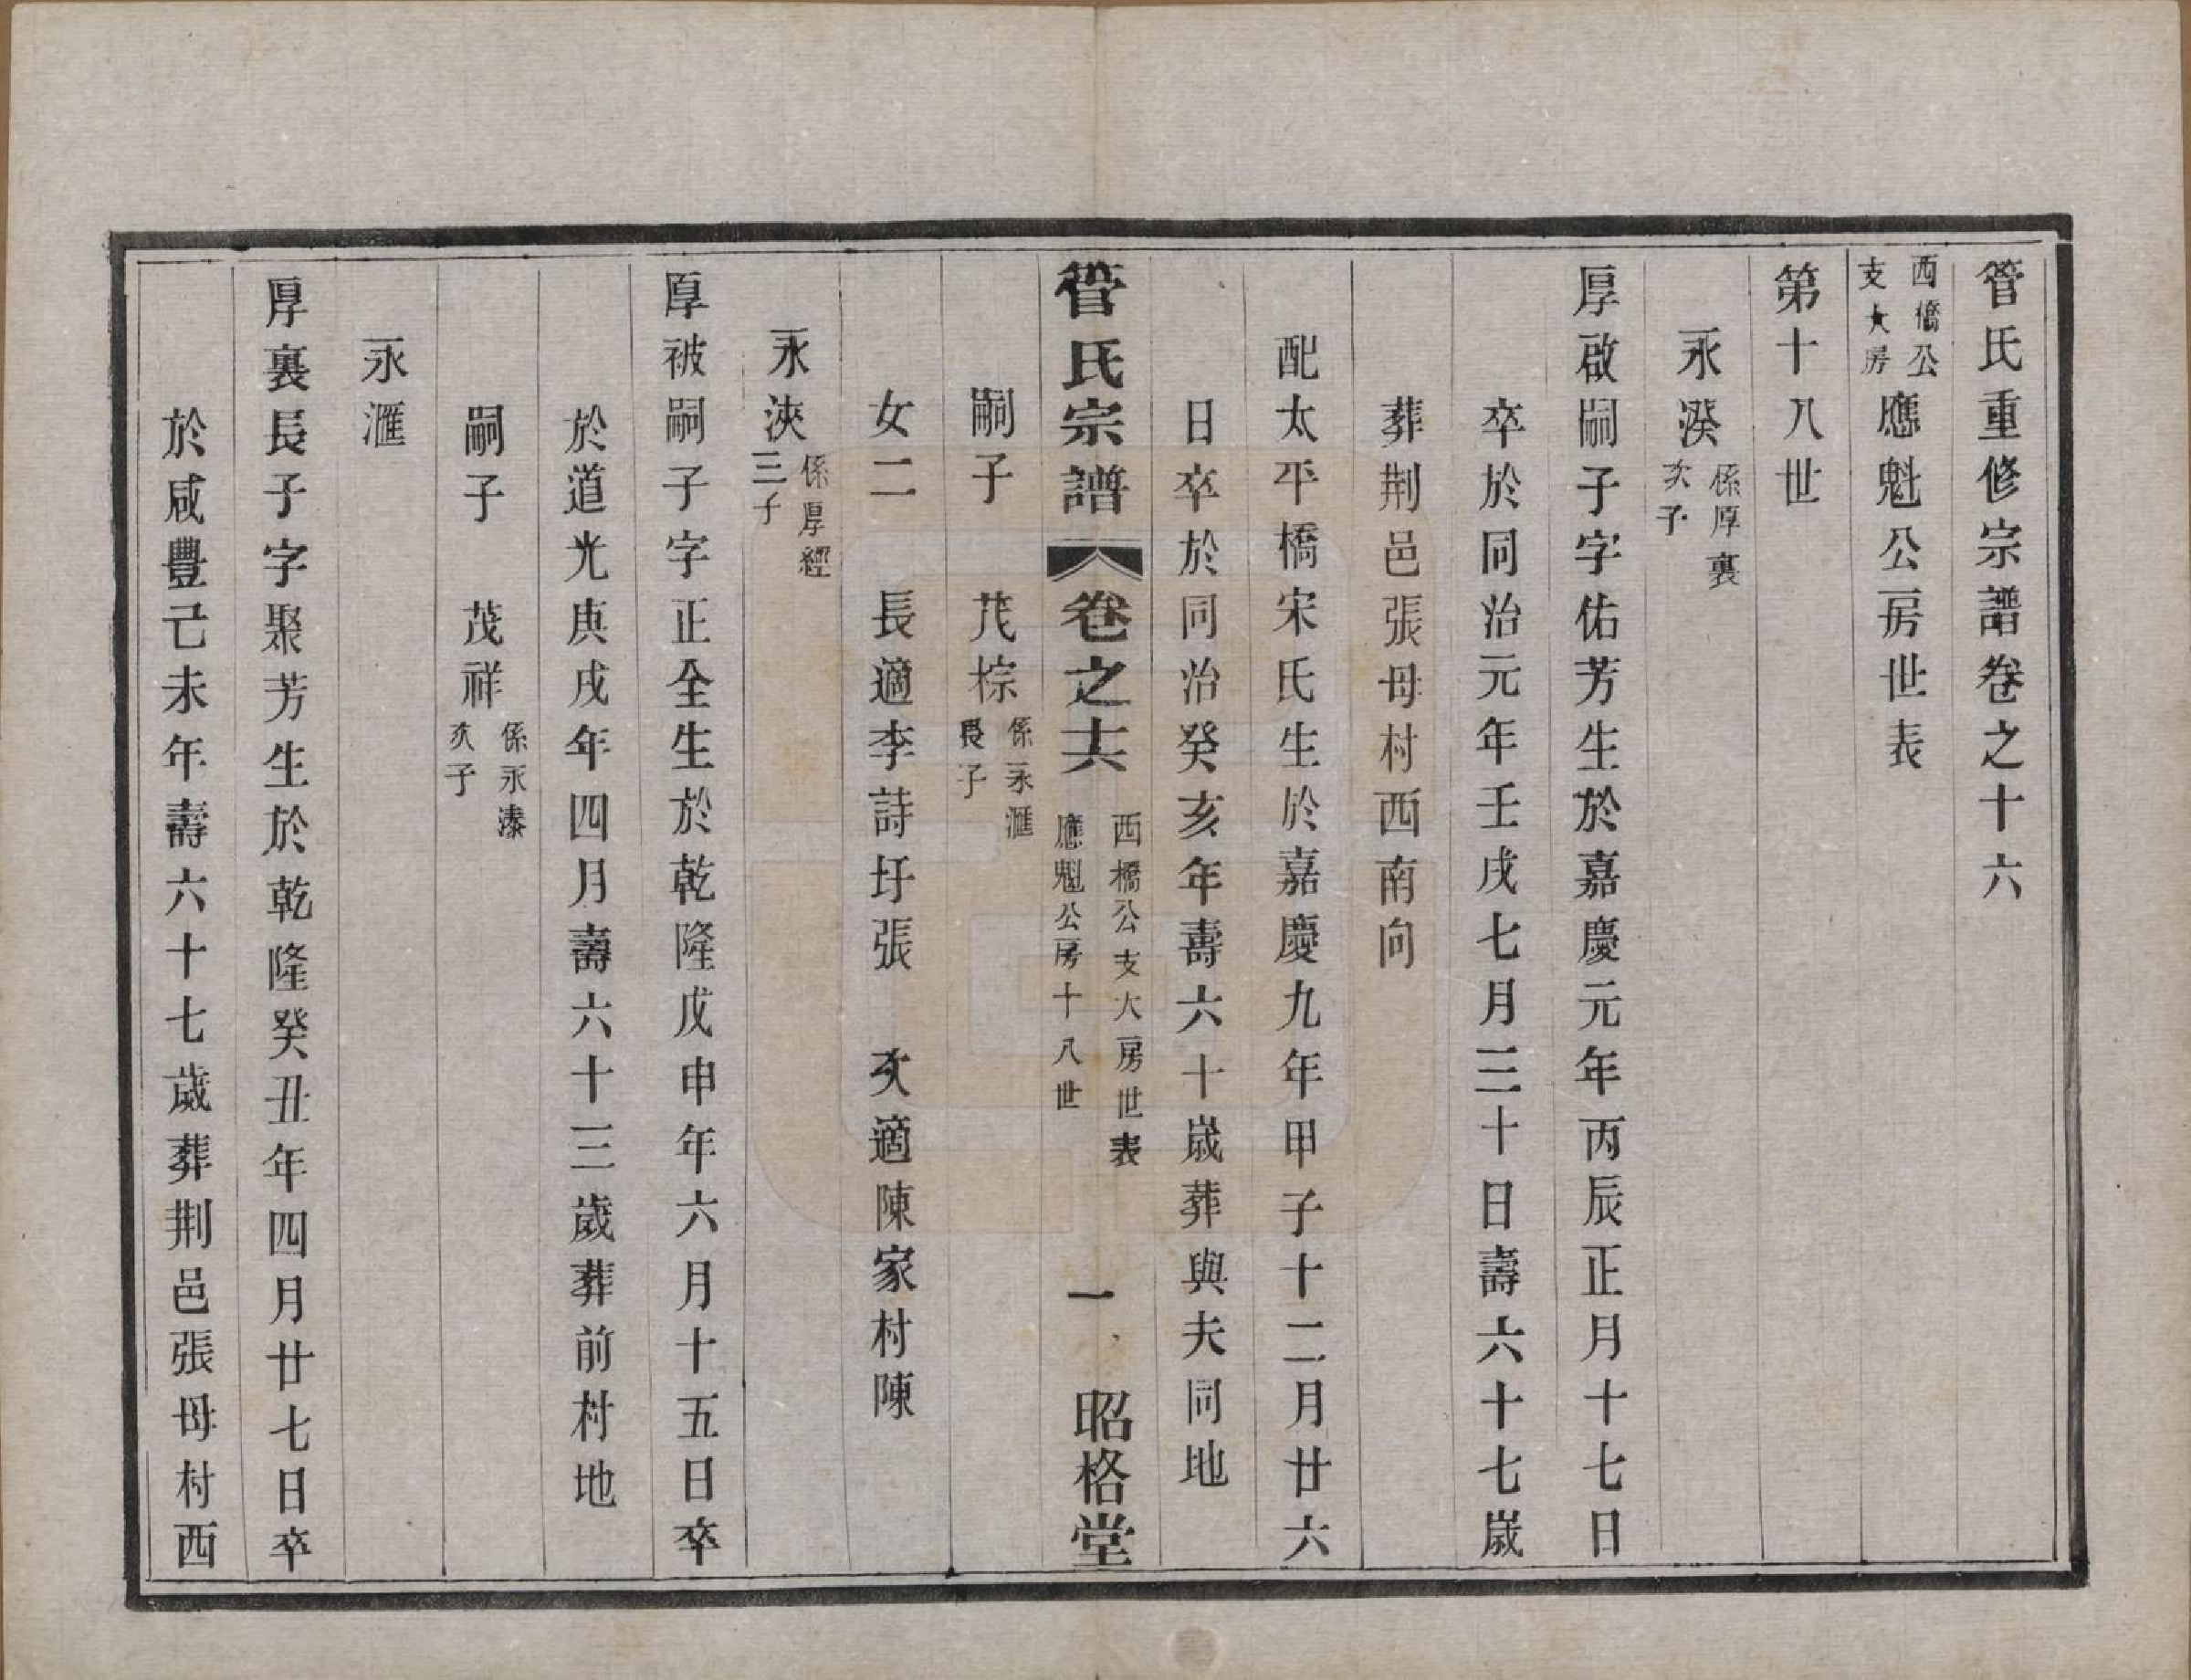 管氏重修宗譜卷之十六
西橋公支大房 應魁公房世表
第十八世
永湀 係厚裏次子
厚啟嗣子字佑芳生於嘉慶元年丙辰正月十七日
卒於同治元年壬戌七月三十日壽六十七歲
葬荆邑張母村西南向
配太平橋宋氏生於嘉慶九年甲子十二月廿六
日卒於同治癸亥年壽六十歲葬與夫同地
管氏宗譜 卷之十六 西橋公支大房世表 應魁公房十八世 一 昭格堂
嗣子 茂棕 係永滙長子
女二 長適李詩圩張 次適陳家村陳
永浹 係厚經三子
厚被嗣子字正全生於乾隆戊申年六月十五日卒
於道光庚戌年四月壽六十三歲葬前村地
嗣子 茂祥 係永溙次子
永滙
厚裏長子字聚芳生於乾隆癸丑年四月廿七日卒
於咸豐己未年壽六十七歲葬荆邑張母村西